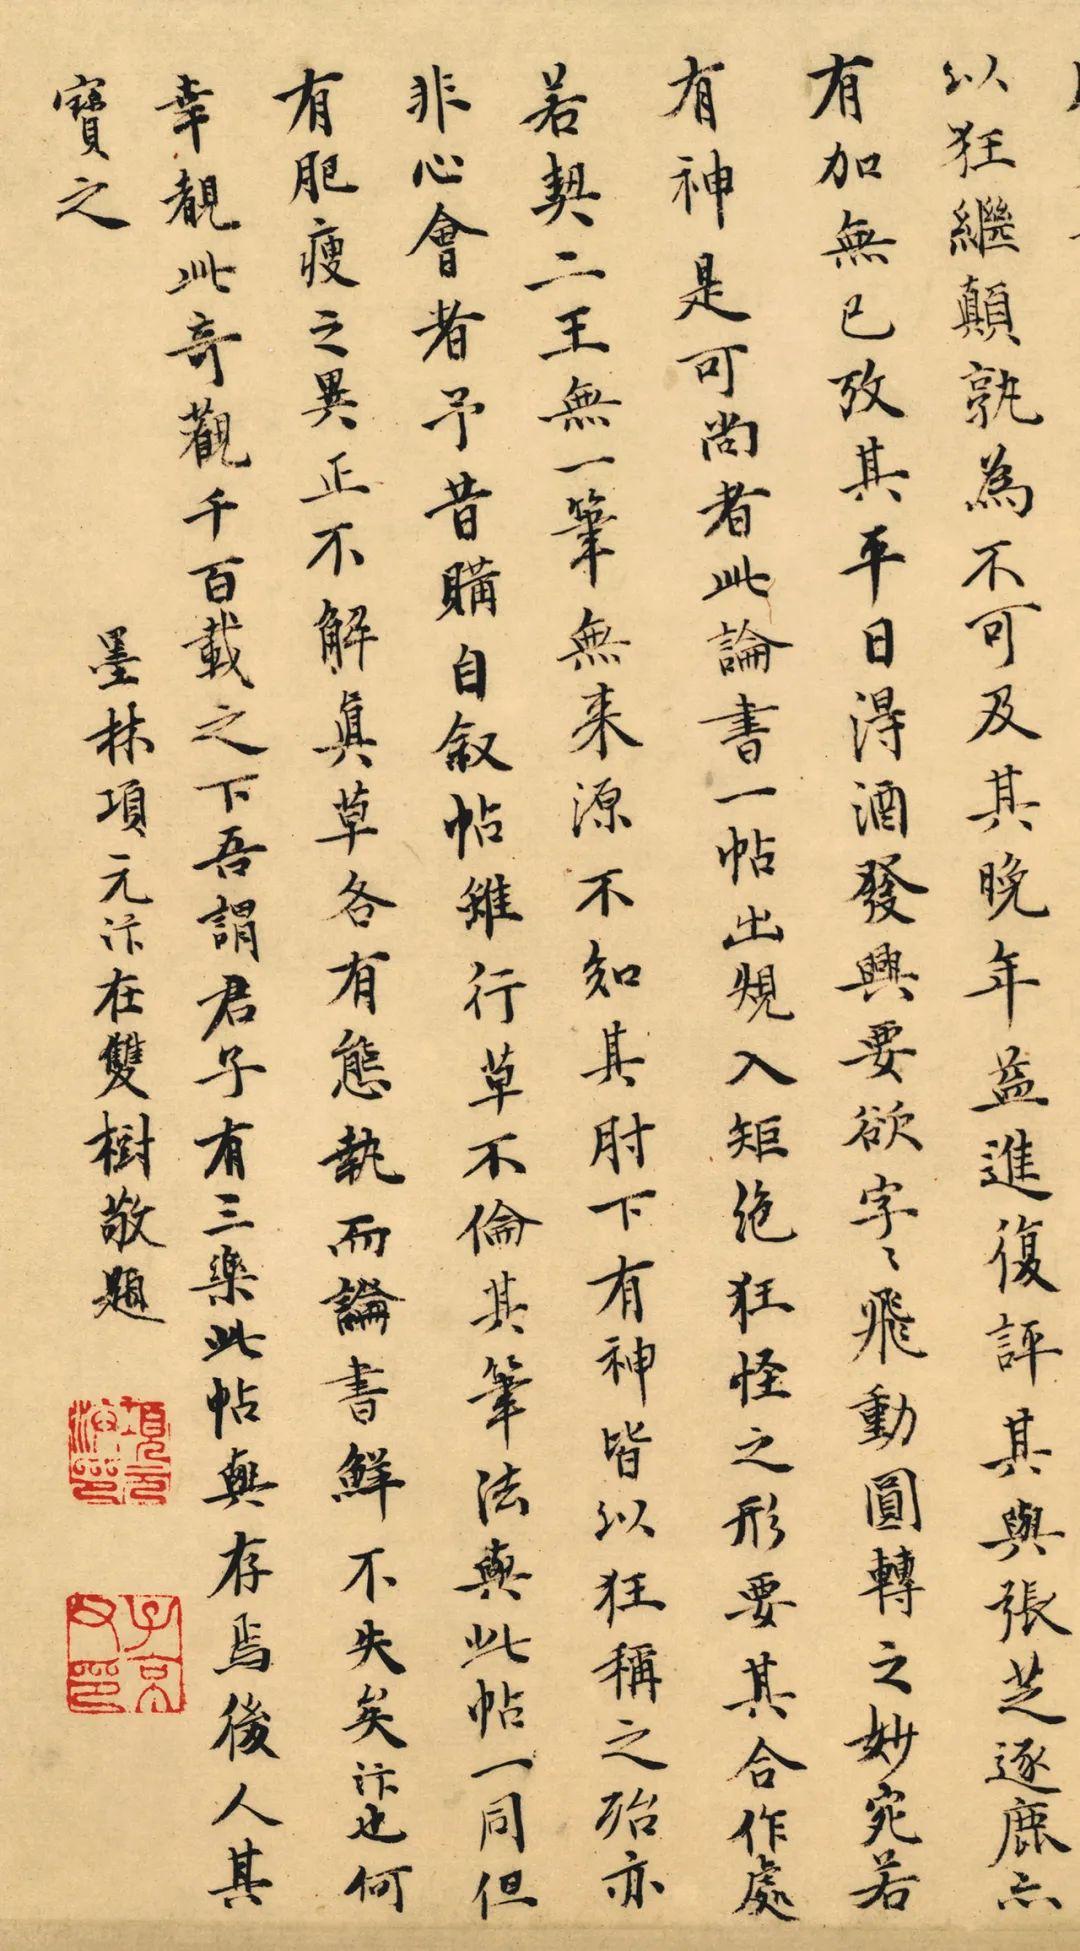 以狂繼顛孰為不可及其晚年益進復評其與張芝逐鹿亦
有加無已攷其平日得酒發興要欲字〻飛動圓轉之妙宛若
有神是可尚者此論書一帖出規入矩絶狂怪之形要其合作處
若契二王無一筆無来源不知其肘下有神皆以狂稱之殆亦
非心會者予昔購自叙帖雖行草不倫其筆法與此帖一同但
有肥瘦之異正不解眞草各有態執而論書鮮不失矣汴也何
幸覩此奇觀千百載之下吾謂君子有三樂此帖與存焉後人其
寶之
墨林項元汴在雙樹敬題
項元汴印
子京父印